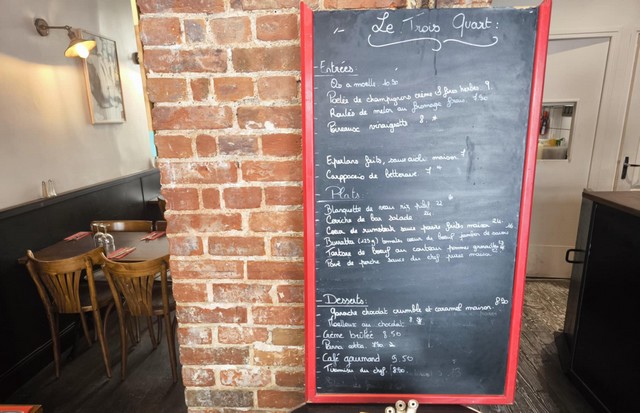 Le Trois Quart:
- Entrées
- Os a moelle 6.50
- Poêlée de champignons crème & fines herbes 9.
- Roulés de melon au fromage frais 7.50
- Poireaux vinaigrette 8
- Eperlans frits, sauce aïoli maison 7
- Carppaccio de betterave 7
- Plats
- Blanquette de veau riz pilaf 22
- Ceviche de bar salade 24
- Cœur de rumsteak sauce poivre frites maison 24
- Tartare de bœuf au couteau pommes
- Pavé de sauce du chef purée maison
- Desserts:
- Ganache chocolat crumble et caramel maison 8.50
- Moelleux au chocolat 8
- Crème brûlée 8.50
- Panna cotta
- Café gourmand 9.50
- Tiramisu du chef 8.50